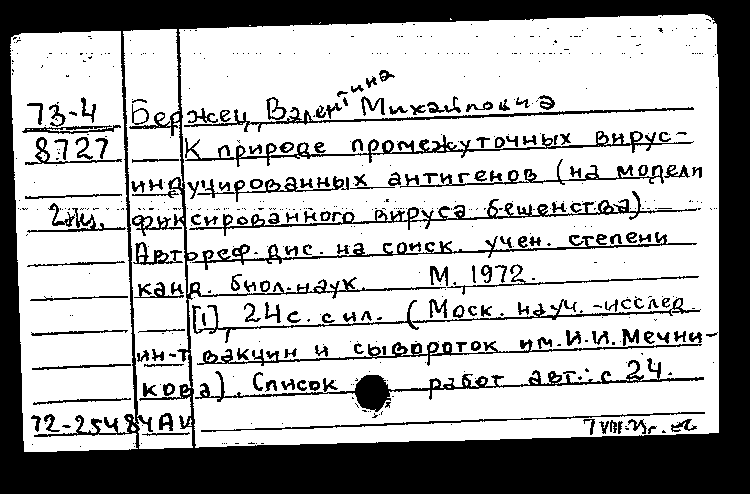 73-4 Бержец, Валентина Михайловна
8727 К природе промежуточных вирус-
индуцированных антигенов (на модели
2экз. фиксированного вируса бешенства).
Автореф. дис. на соиск. учен. степени
канд. биол. наук. М., 1972.
[1], 24 с. с ил. (Моск. науч.-исслед
ин-т вакцин и сывороток им. И.И. Мечни-
кова). Список работ авт.: с 24.
72-25484АИ